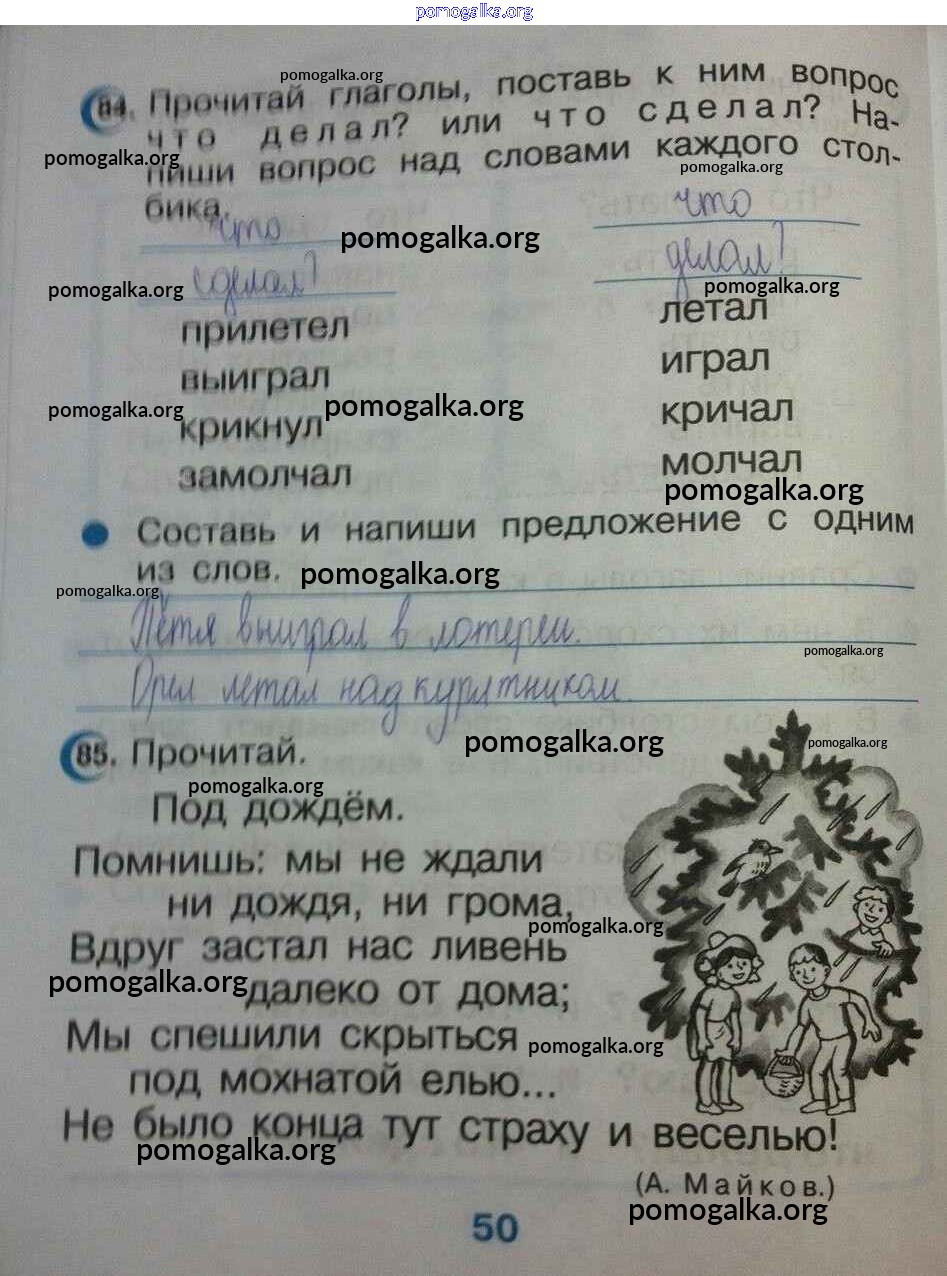 pomogalka.org
pomogalka.org
84. Прочитай глаголы, поставь к ним вопрос
что делал? или что сделал? На-
pomogalka.org
пиши вопрос над словами каждого стол-
pomogalka.org
бика.
что
что
pomogalka.org
сделал?
делал?
pomogalka.org
pomogalka.org
прилетел
летал
выиграл
играл
pomogalka.org
pomogalka.org
крикнул
кричал
замолчал
молчал
pomogalka.org
Составь и напиши предложение с одним
из слов.
pomogalka.org
pomogalka.org
Петя выиграл в лотереи.
pomogalka.org
Орел летал над курятником.
85. Прочитай.
pomogalka.org
pomogalka.org
pomogalka.org
Под дождём.
Помнишь: мы не ждали
ни дождя, ни грома,
pomogalka.org
Вдруг застал нас ливень
pomogalka.org
далеко от дома;
Мы спешили скрыться
pomogalka.org
под мохнатой елью...
Не было конца тут страху и веселью!
pomogalka.org
(А. Майков.)
pomogalka.org
50